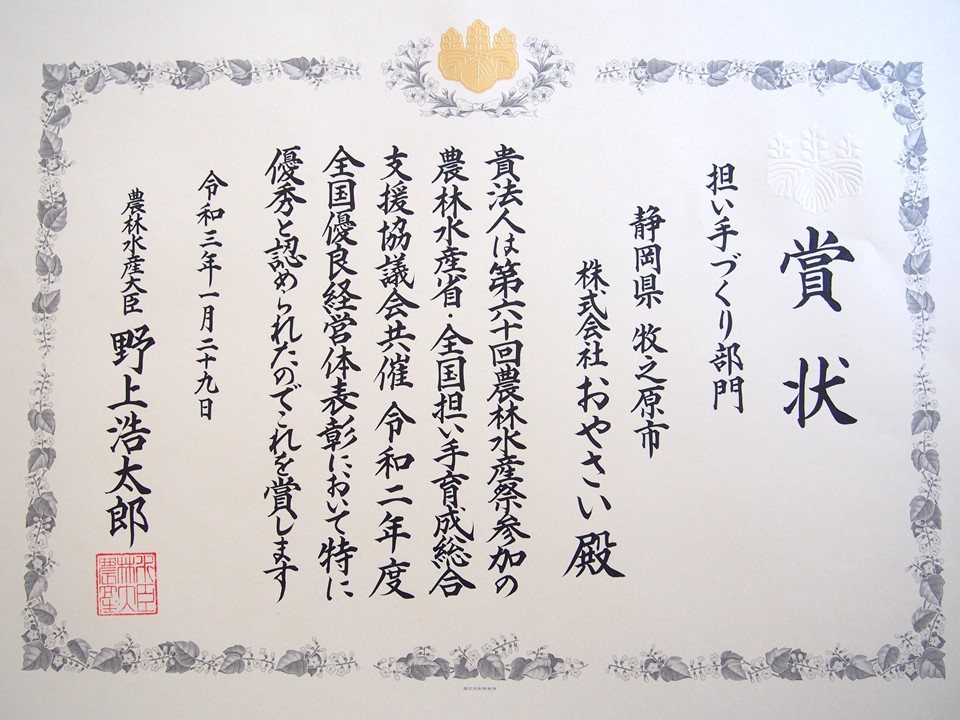 賞状
担い手づくり部門
静岡県 牧之原市
株式会社 おやさい 殿
貴法人は第六十回農林水産祭参加の
農林水産省・全国担い手育成総合
支援協議会共催 令和二年度
全国優良経営体表彰において特に
優秀と認められたのでこれを賞します
令和三年一月二十九日
農林水産大臣 野上浩太郎